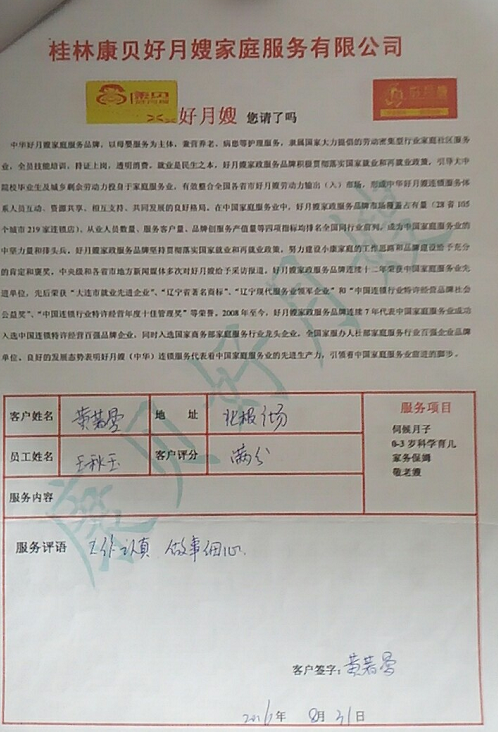 桂林康贝好月嫂家庭服务有限公司
康贝
好月嫂
好月嫂 您请了吗
中华好月嫂家庭服务品牌，以母婴服务为主体，兼营养老、病患等护理服务，隶属国家大力提倡的劳动密集型行业家庭社区服务
业，全员技能培训，持证上岗，透明消费。就业是民生之本，好月嫂家政服务品牌积极贯彻落实国家就业和再就业政策，引导大中
院校毕业生及城乡剩余劳动力投身于家庭服务业，有效整合全国各省市好月嫂劳动力输出（入）市场，形成中华好月嫂连锁服务体
系人员互动、资源共享、相互支持、共同发展的良好格局。在中国家庭服务业中，好月嫂家政服务品牌市场覆盖占有量（28省105
个城市219家连锁店）、从业人员数量、服务客户量、品牌创服务产值量等四项指标均排名全国同行业前列，成为中国家庭服务业的
中坚力量和排头兵。好月嫂家政服务品牌坚持贯彻落实国家就业和再就业政策，努力建设小康家庭的工作思路和品牌建设给予充分
的肯定和褒奖。中央级和各省市地方新闻媒体多次对好月嫂给予采访报道。好月嫂家政服务品牌连续十二年荣获中国家庭服务业先
进单位，先后荣获“大连市就业先进企业”、“辽宁省著名商标”、“辽宁现代服务业领军企业”和“中国连锁行业特许经营品牌社会
公益奖”、“中国连锁行业特许经营年度十佳管理奖”等荣誉。2008年至今，好月嫂家政服务品牌连续7年代表中国家庭服务业成功
入选中国连锁特许经营百强品牌企业，同时入选国家商务部家庭服务行业龙头企业，全国家服办人社部家庭服务行业百强企业品牌
单位。良好的发展态势表明好月嫂（中华）连锁服务代表着中国家庭服务业的先进生产力，引领着中国家庭服务业前进的脚步。
康贝好月嫂
客户姓名 黄若雪 地 址 北极广场 服务项目
伺候月子
0-3岁科学育儿
家务保姆
敬老渡
员工姓名 王秋玉 客户评分 满分
服务内容
服务评语 工作认真 做事细心.
客户签字：黄若雪
2016年 8月31日